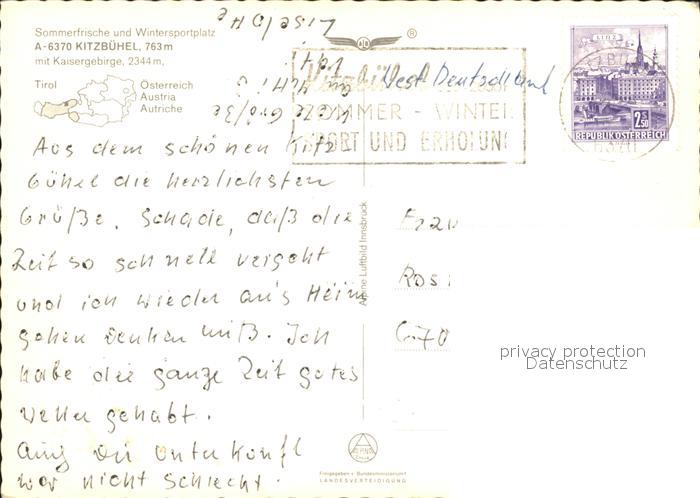 Sommerfrische und Wintersportplatz
A-6370 KITZBÜHEL, 763 m
mit Kaisergebirge, 2344 m,
Tirol
Österreich
Austria
Autriche
®
LINZ
2.50
REPUBLIK ÖSTERREICH
West Deutschland
SOMMER - WINTER
SPORT UND ERHOLUNG
Aus dem schönen Kitz
bühel die herzlichsten
Grüße. Schade, daß die
Zeit so schnell vergeht
und ich wieder an's Heim
gehen denken muß. Ich
habe die ganze Zeit gotes
Wetter gehabt.
Die Unterkunft
war nicht schlecht.
Alpine Luftbild Innsbruck
Frau
Rosi
privacy protection
Datenschutz
Freigegeben v. Bundesministerium f.
LANDESVERTEIDIGUNG